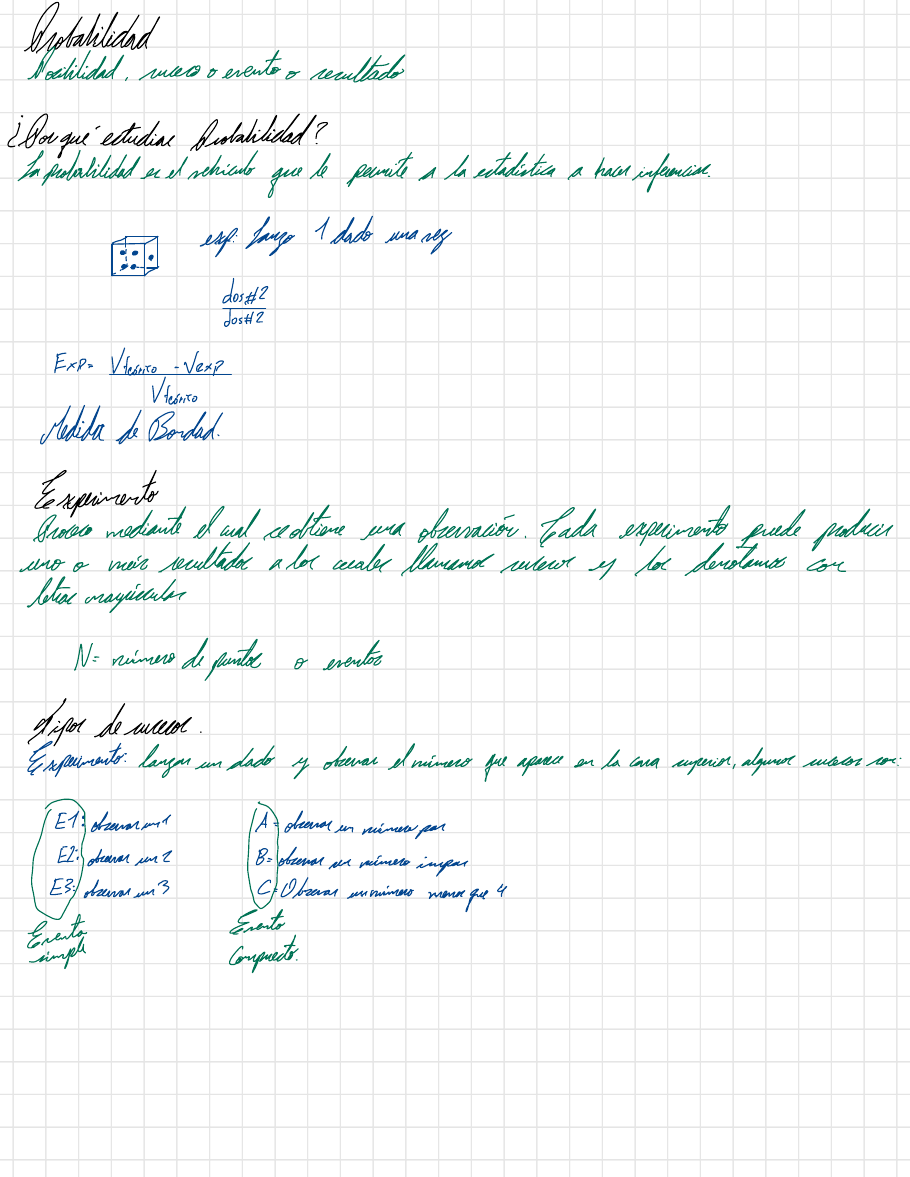 Probabilidad
Posibilidad, suceso o evento o resultado
¿Por qué estudiar Probabilidad?
La probabilidad es el vehículo que le permite a la estadística a hacer inferencias.
exp: Lanzo 1 dado una vez
dos#2
dos#2
Exp= Vteórico - Vexp
Vteórico
Medida de Bondad.
Experimento
Proceso mediante el cual se obtiene una observación. Cada experimento puede producir
uno o más resultados a los cuales llamamos sucesos y los denotamos con
letras mayúsculas
N= número de puntos o eventos
Tipos de sucesos.
Experimento: lanzar un dado y observar el número que aparece en la cara superior, algunos sucesos son:
E1: observar un 1
A= observar un número par
E2: observar un 2
B= observar un número impar
E3: observar un 3
C= Observar un número menor que 4
Evento
simple
Evento
Compuesto.